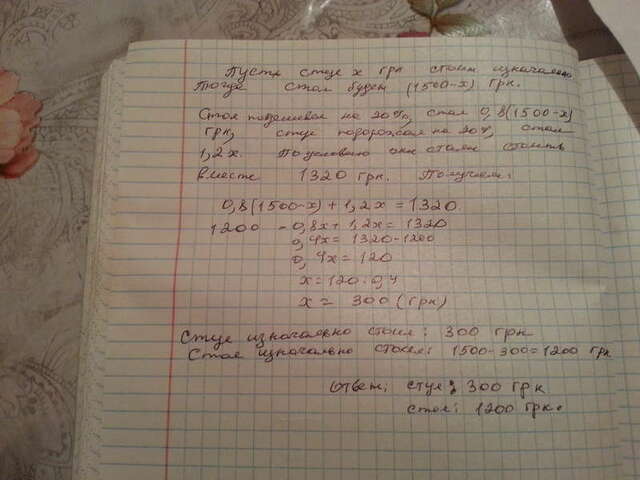 Пусть стул x грн стоил изначально
Тогда стол будет (1500-x) грн.
Стол подешевел на 20%, стал 0,8(1500-x)
грн, стул подорожал на 20%, стал
1,2x. По условию они стали стоить
вместе 1320 грн. Получаем:
0,8(1500-x) + 1,2x = 1320.
1200 - 0,8x + 1,2x = 1320
0,4x = 1320-1200
0,4x = 120
x = 120 : 0,4
x = 300 (грн)
Стул изначально стоил: 300 грн
Стол изначально стоил: 1500-300=1200 грн
Ответ: стул: 300 грн
стол: 1200 грн.